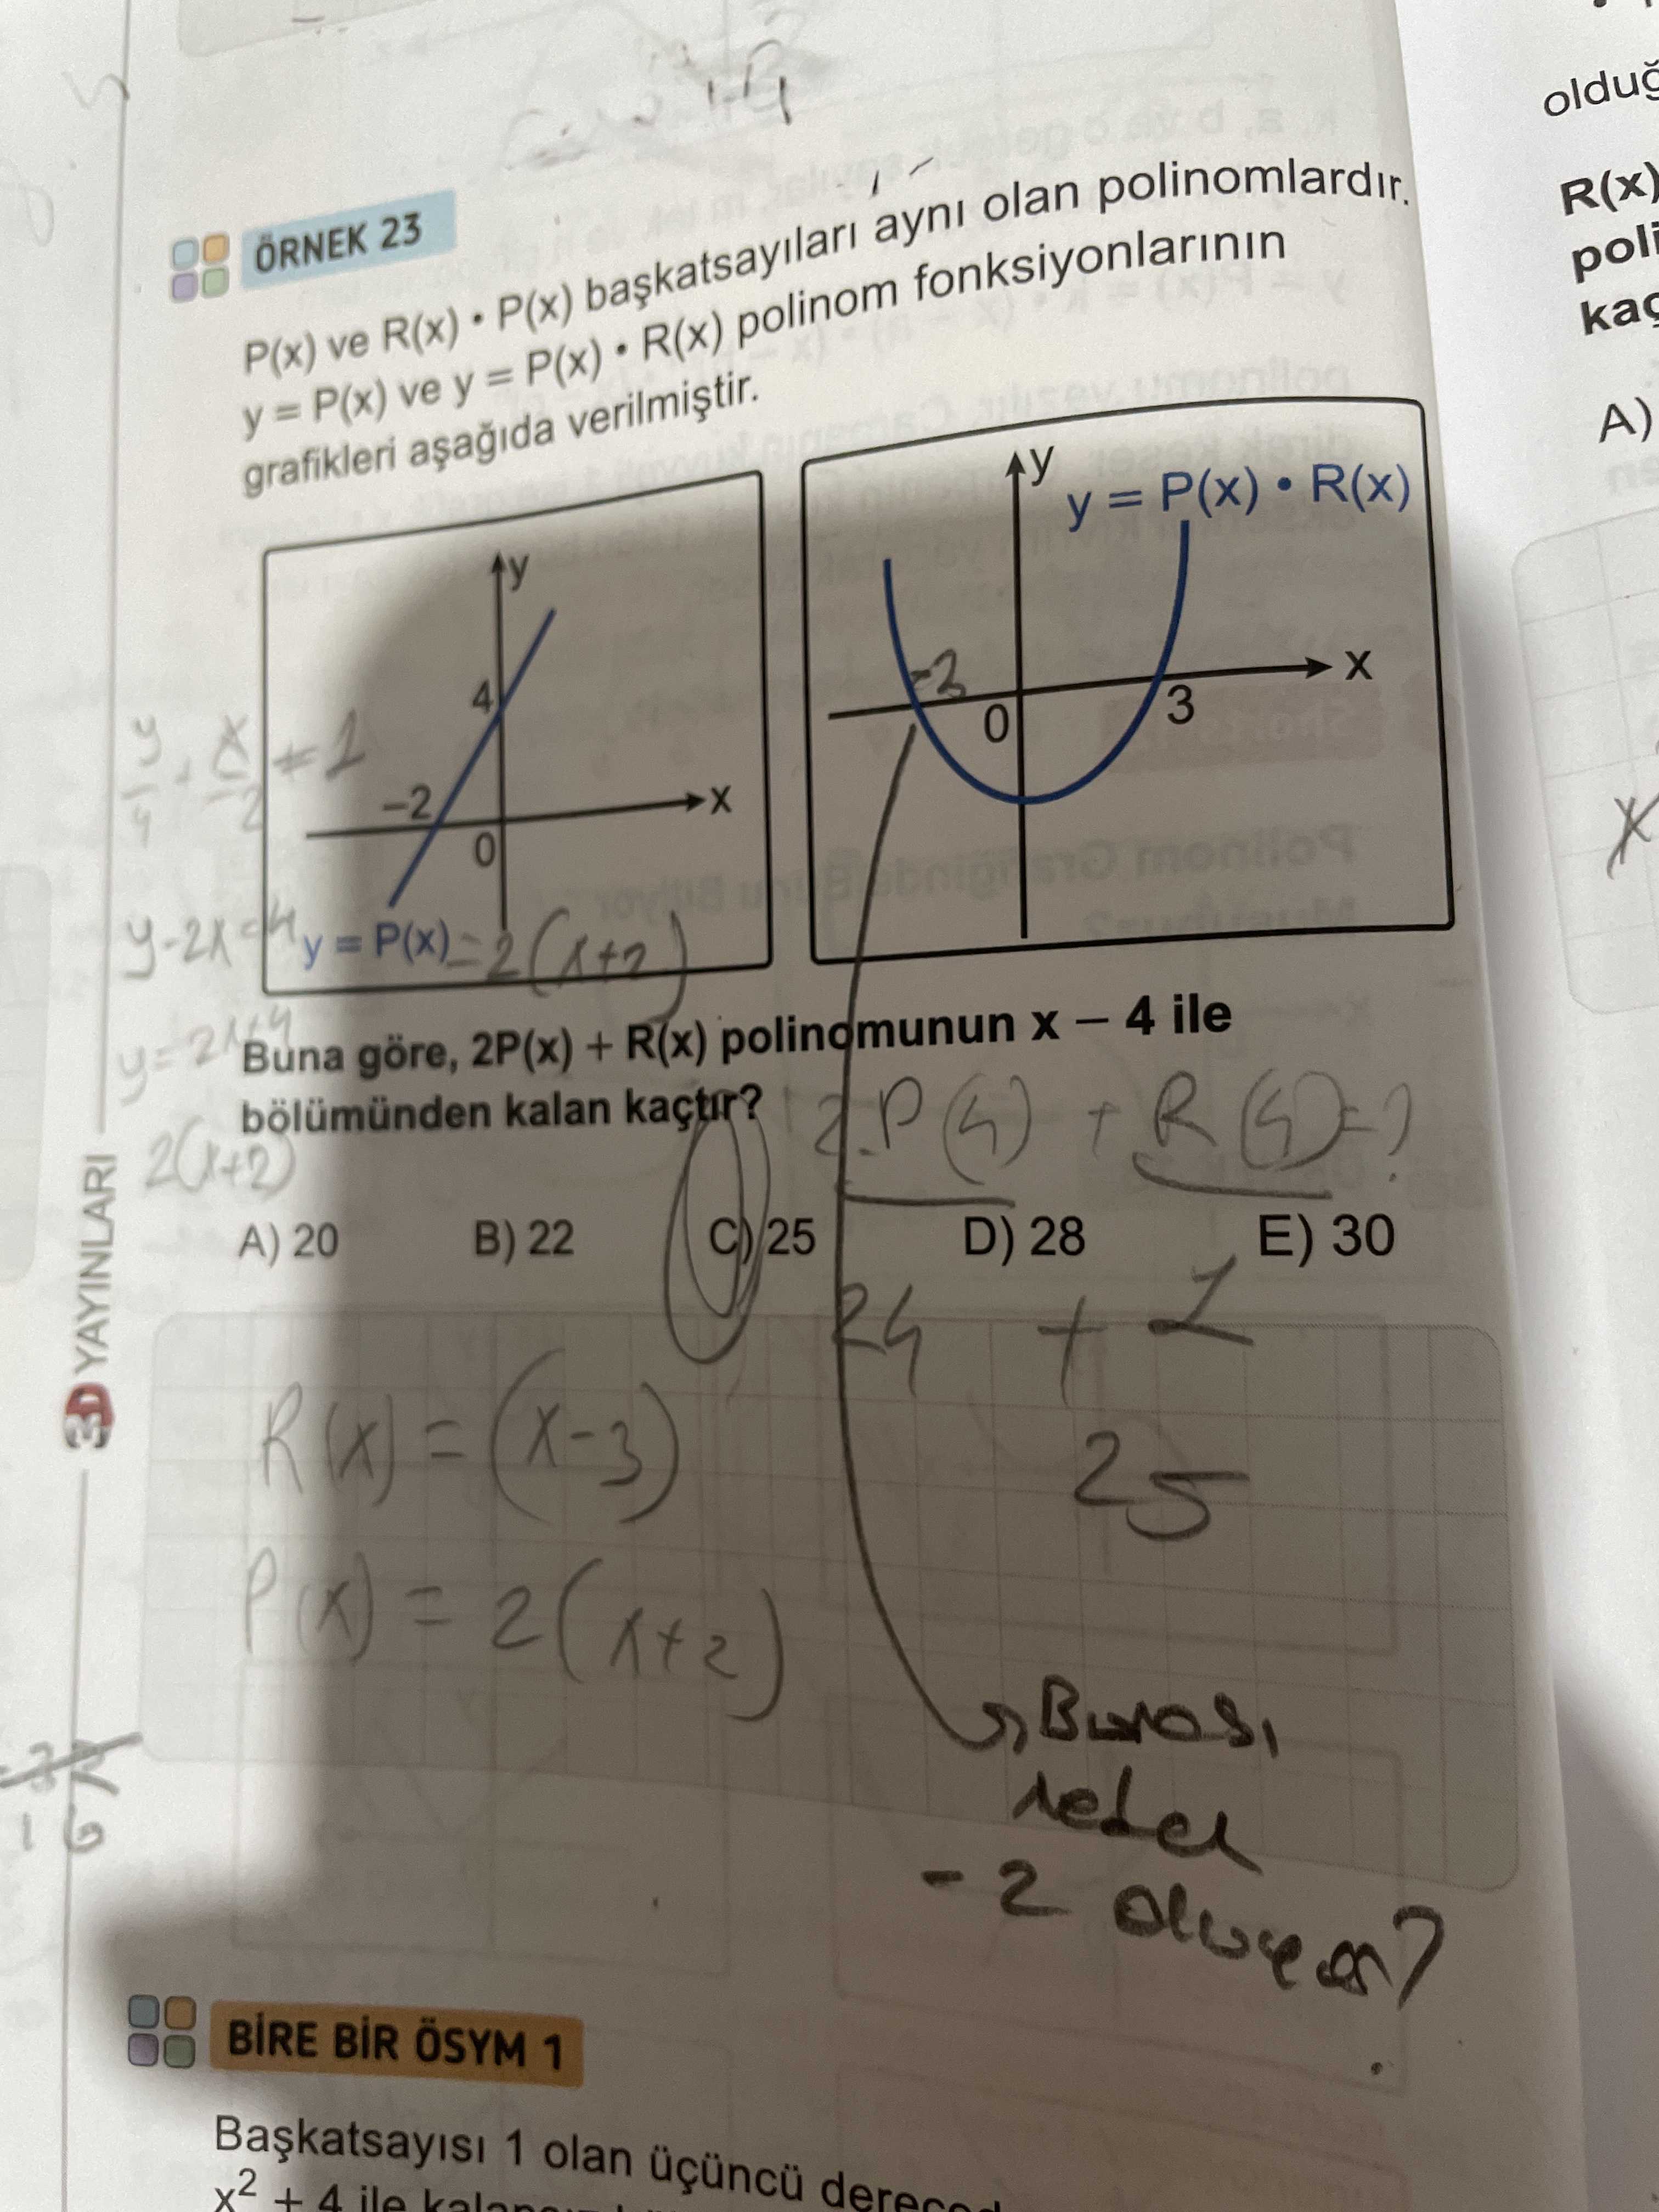 ÖRNEK 23
P(x) ve R(x) • P(x) başkatsayıları aynı olan polinomlardır.
y = P(x) ve y = P(x) • R(x) polinom fonksiyonlarının
grafikleri aşağıda verilmiştir.
y
4
-2
0
x
y = P(x) = 2(x+2)
y
y = P(x) • R(x)
-2
0
3
x
y/4 + x/-2 = 1
y-2x=4
y=2x+4
2(x+2)
Buna göre, 2P(x) + R(x) polinomunun x – 4 ile
bölümünden kalan kaçtır?
2.P(4) + R(4)=?
A) 20 B) 22 C) 25 D) 28 E) 30
24 + 1
25
R(x) = (x-3)
P(x) = 2(x+2)
Burası
neden
-2 oluyor?
3D YAYINLARI
BİRE BİR ÖSYM 1
Başkatsayısı 1 olan üçüncü dereced
x² + 4 ile
olduğ
R(x)
poli
kaç
A)